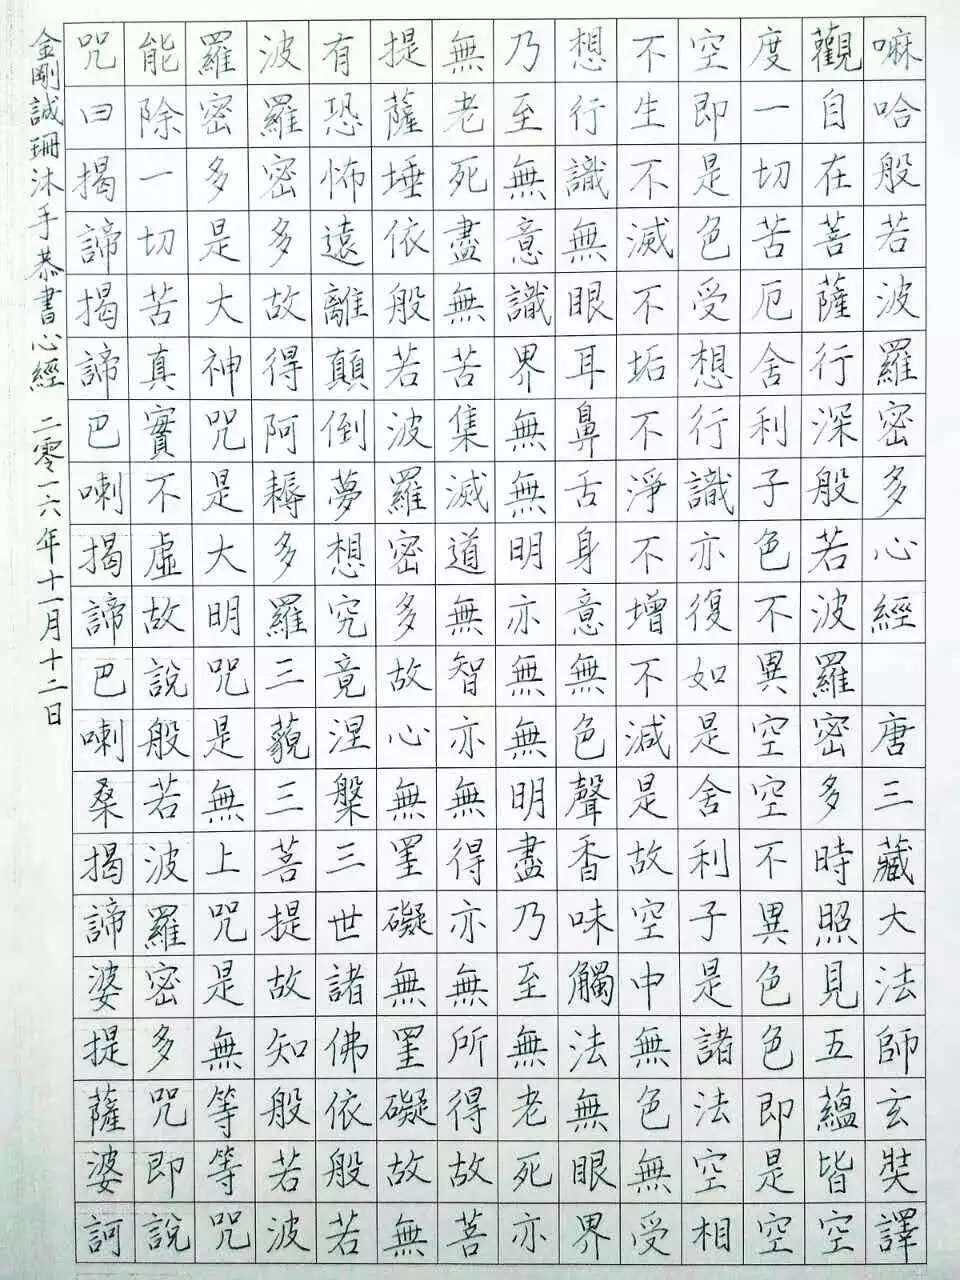 嘛哈般若波羅密多心經 唐三藏大法師玄奘譯
觀自在菩薩行深般若波羅密多時照見五蘊皆空
度一切苦厄舍利子色不異空空不異色色即是空
空即是色受想行識亦復如是舍利子是諸法空相
不生不滅不垢不淨不增不減是故空中無色無受
想行識無眼耳鼻舌身意無色聲香味觸法無眼界
乃至無意識界無無明亦無無明盡乃至無老死亦
無老死盡無苦集滅道無智亦無得亦無所得故菩
提薩埵依般若波羅密多故心無罣礙無罣礙故無
有恐怖遠離顛倒夢想究竟涅槃三世諸佛依般若
波羅密多故得阿耨多羅三藐三菩提故知般若波
羅密多是大神咒是大明咒是無上咒是無等等咒
能除一切苦真實不虛故說般若波羅密多咒即說
咒曰揭諦揭諦巴喇揭諦巴喇桑揭諦婆提薩婆訶
金剛誠珊沐手恭書心經 二零一六年十一月十二日